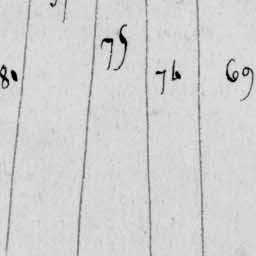 80 75 76 69